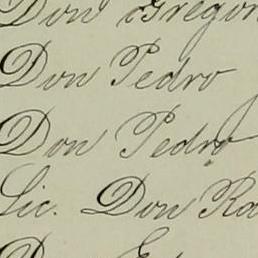 Don Grego
Don Pedro
Don Pedro
Lic. Don Ro
Don